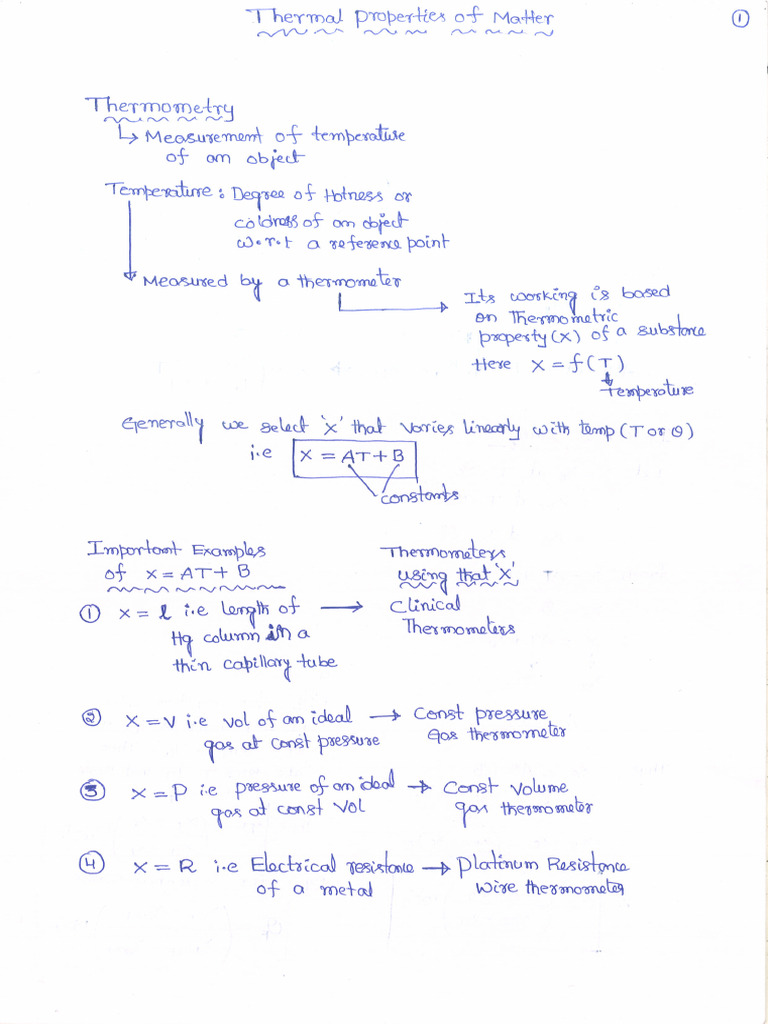 Thermal Properties of Matter
1
Thermometry
↳ Measurement of temperature
of an object
Temperature : Degree of Hotness or
coldness of an object
w.r.t a reference point
Measured by a thermometer
Its working is based
on Thermometric
property (x) of a substance
Here x = f(T)
Temperature
Generally we select 'x' that varies linearly with temp (T or θ)
i.e x = AT + B
constants
Important Examples
of x = AT + B
Thermometers
using that 'x'
① x = l i.e length of
Hg column in a
thin capillary tube
→ Clinical
Thermometers
② x = V i.e vol of an ideal → Const pressure
gas at const pressure Gas thermometer
③ x = P i.e pressure of an ideal → Const Volume
gas at const vol gas thermometer
④ x = R i.e Electrical resistance → Platinum Resistance
of a metal wire thermometer